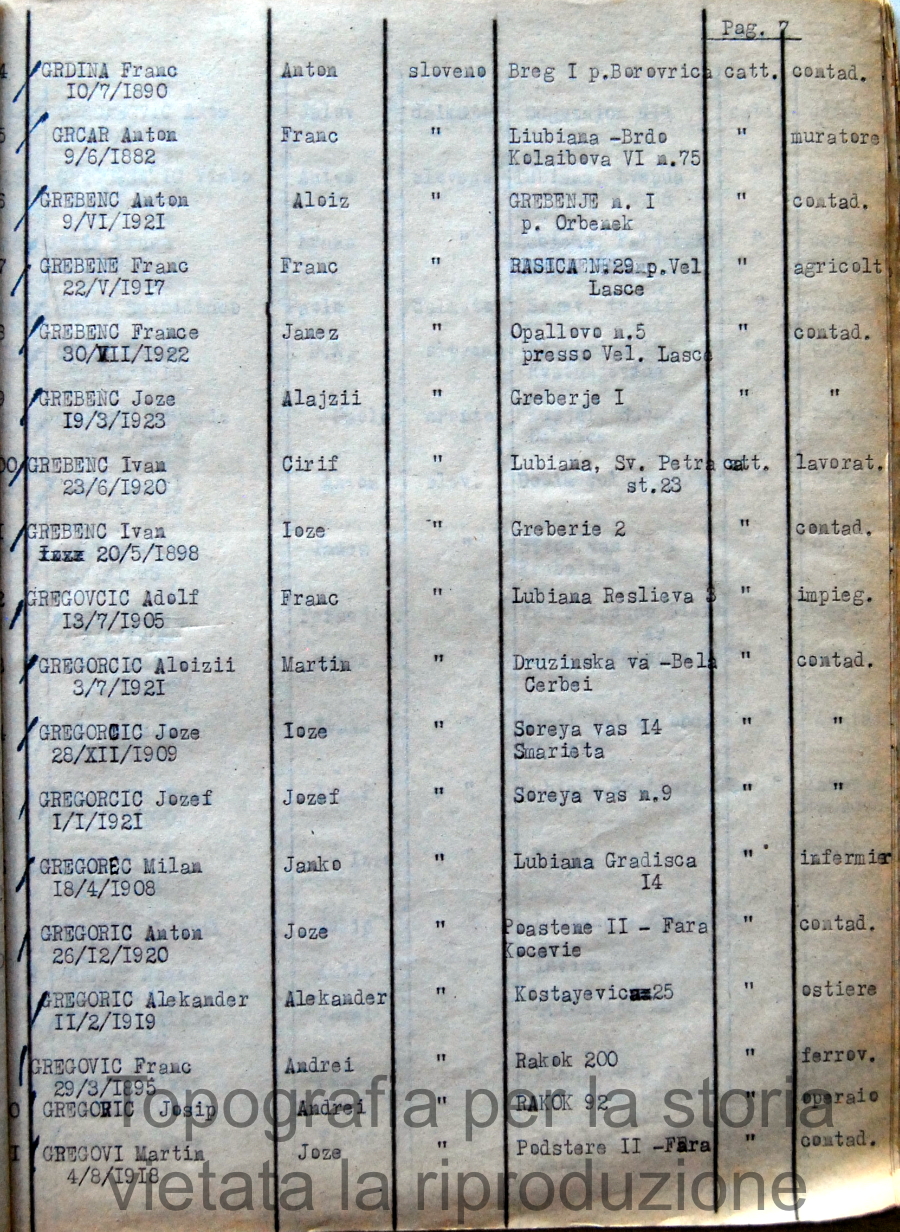 Pag. 7
4 GRDINA Franc Anton sloveno Breg I p.Borovrica catt. contad.
IO/7/I890
5 GRCAR Anton Franc " Liubiana -Brdo " muratore
9/6/I882 Kolaibova VI n.75
6 GREBENC Anton Aloiz " GREBENJE n. I " contad.
9/VI/I92I p. Orbenek
7 GREBENE Franc Franc " RASICA N.29 p.Vel " agricolt
22/V/I9I7 Lasce
8 GREBENC France Janez " Opallovo n.5 " contad.
30/XII/I922 presso Vel. Lasce
9 GREBENC Joze Alajzii " Greberje I " "
I9/3/I923
00 GREBENC Ivan Cirif " Lubiana, Sv. Petra catt. lavorat.
23/6/I920 st.23
I GREBENC Ivan Ioze " Greberie 2 " contad.
20/5/I898
2 GREGOVCIC Adolf Franc " Lubiana Reslieva 3 " impieg.
I3/7/I905
GREGORCIC Aloizii Martin " Druzinska va -Bela " contad.
3/7/I92I Cerbei
GREGORCIC Joze Ioze " Soreya vas I4 " "
28/XII/I909 Smarieta
GREGORCIC Jozef Jozef " Soreya vas n.9 " "
I/I/I92I
GREGOREC Milan Janko " Lubiana Gradisca " infermier
I8/4/I908 I4
GREGORIC Anton Joze " Poastene II - Fara " contad.
26/I2/I920 Kocevie
GREGORIC Alekander Alekander " Kostayevic 25 " ostiere
II/2/I9I9
GREGOVIC Franc Andrei " Rakok 200 " ferrov.
29/3/I895
0 GREGORIC Josip Andrei " RAKOK 92 " operaio
I GREGOVI Martin Joze " Podstere II -Fara " contad.
4/8/I9I8
Topografia per la storia
vietata la riproduzione